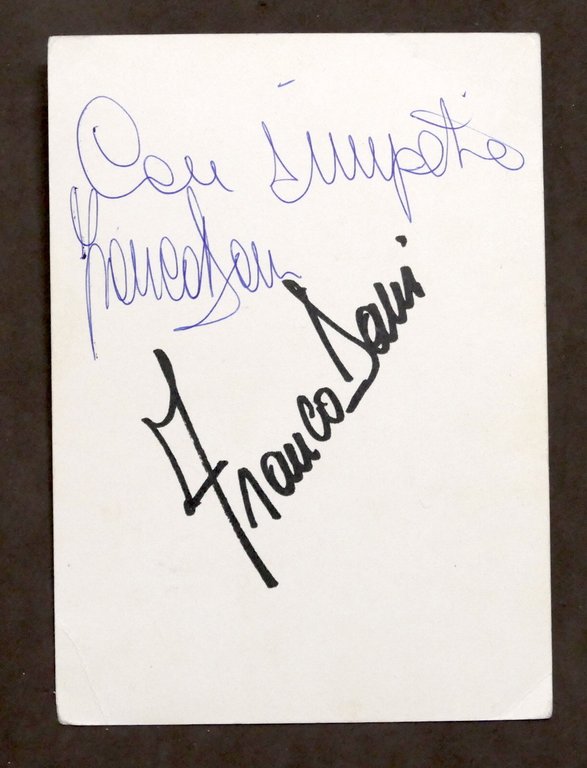 Con simpatia
Franco Dani
Franco Dani